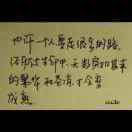 也许一个人要走很多的路，
经历过生命中无数突如其来
的繁华和苍凉，才会变
成熟。